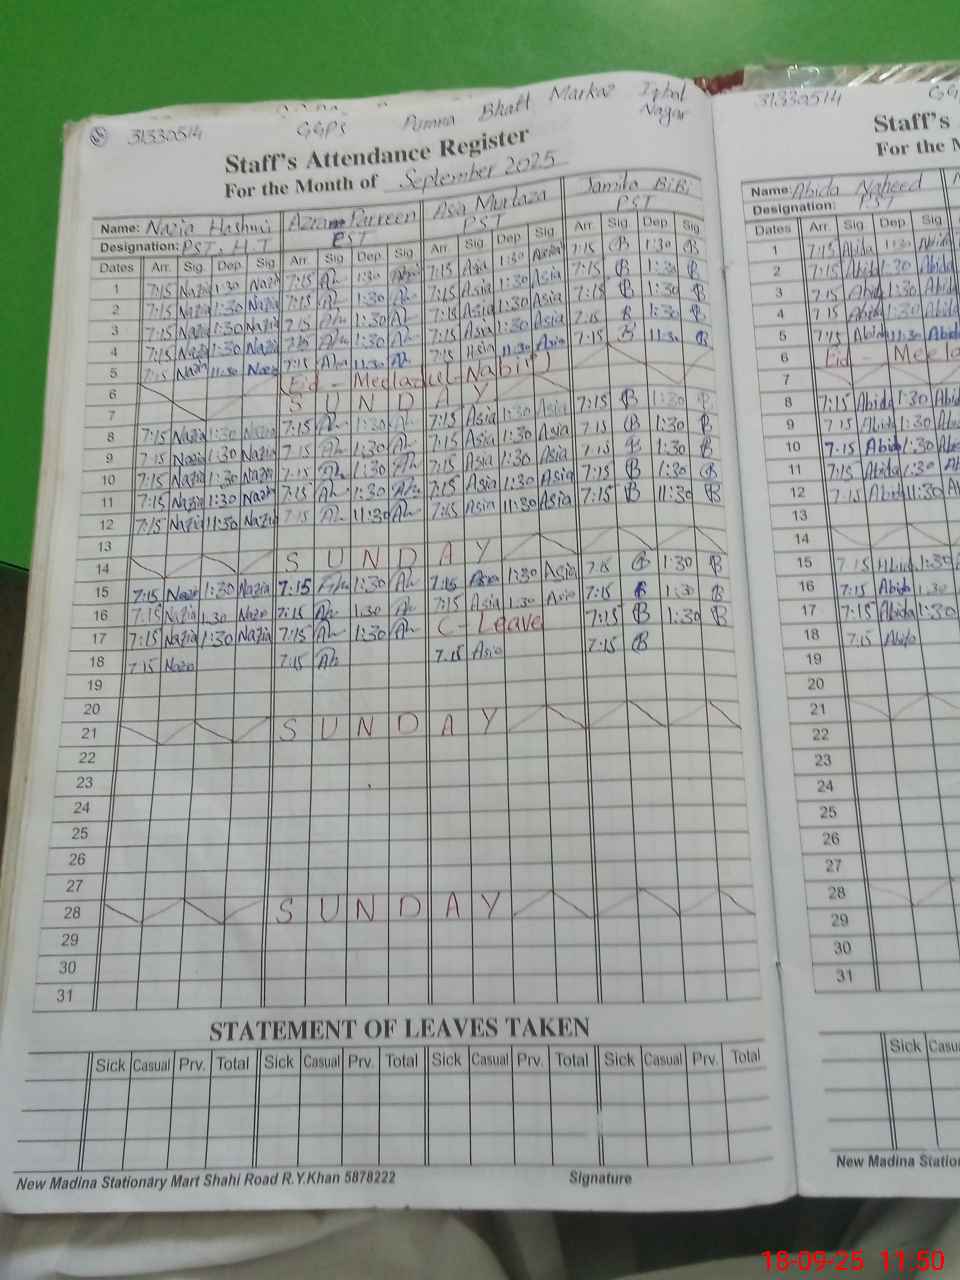 31330514 GGPS Punna Bhatt Markaz Iqbal Nagar
Staff's Attendance Register
For the Month of September 2025
Name: Nazia Hashmi Azra Parveen Asia Murtaza Jamila BiBi
Designation: PST, H.T PST PST PST
Dates Arr. Sig. Dep. Sig. Arr. Sig Dep. Sig. Arr. Sig. Dep. Sig. Arr. Sig. Dep Sig.
1 7:15 Nazia 1:30 Nazia 7:15 Ah 1:30 Ah 7:15 Asia 1:30 Asia 7:15 B 1:30 B
2 7:15 Nazia 1:30 Nazia 7:15 Ah 1:30 Ah 7:15 Asia 1:30 Asia 7:15 B 1:30 B
3 7:15 Nazia 1:30 Nazia 7:15 Ah 1:30 Ah 7:15 Asia 1:30 Asia 7:15 B 1:30 B
4 7:15 Nazia 1:30 Nazia 7:15 Ah 1:30 Ah 7:15 Asia 1:30 Asia 7:15 B 1:30 B
5 7:15 Nazia 11:30 Nazia 7:15 Ah 11:30 Ah 7:15 Asia 11:30 Asia 7:15 B 11:30 B
6 Eid - Meeladul-Nabi
7 S U N D A Y
8 7:15 Nazia 1:30 Nazia 7:15 Ah 1:30 Ah 7:15 Asia 1:30 Asia 7:15 B 1:30 B
9 7:15 Nazia 1:30 Nazia 7:15 Ah 1:30 Ah 7:15 Asia 1:30 Asia 7:15 B 1:30 B
10 7:15 Nazia 1:30 Nazia 7:15 Ah 1:30 Ah 7:15 Asia 1:30 Asia 7:15 B 1:30 B
11 7:15 Nazia 1:30 Nazia 7:15 Ah 1:30 Ah 7:15 Asia 1:30 Asia 7:15 B 1:30 B
12 7:15 Nazia 11:30 Nazia 7:15 Ah 11:30 Ah 7:15 Asia 11:30 Asia 7:15 B 11:30 B
13
14 S U N D A Y
15 7:15 Nazia 1:30 Nazia 7:15 Ah 1:30 Ah 7:15 Asia 1:30 Asia 7:15 B 1:30 B
16 7:15 Nazia 1:30 Nazia 7:15 Ah 1:30 Ah 7:15 Asia 1:30 Asia 7:15 B 1:30 B
17 7:15 Nazia 1:30 Nazia 7:15 Ah 1:30 Ah C- Leave 7:15 B 1:30 B
18 7:15 Nazia 7:15 Ah 7:15 Asia 7:15 B
19
20
21 S U N D A Y
22
23
24
25
26
27
28 S U N D A Y
29
30
31
STATEMENT OF LEAVES TAKEN
Sick Casual Prv. Total Sick Casual Prv. Total Sick Casual Prv. Total Sick Casual Prv. Total
New Madina Stationary Mart Shahi Road R.Y.Khan 5878222 Signature
31330514
Staff's
For the M
Name: Abida Naheed
Designation: PST
Dates Arr. Sig Dep. Sig.
1 7:15 Abida 1:30 Abida
2 7:15 Abida 1:30 Abida
3 7:15 Abida 1:30 Abida
4 7:15 Abida 1:30 Abida
5 7:15 Abida 11:30 Abida
6 Eid - Meela
7
8 7:15 Abida 1:30 Abida
9 7:15 Abida 1:30 Abida
10 7:15 Abida 1:30 Abi
11 7:15 Abida 1:30 Ab
12 7:15 Abida 11:30 A
13
14
15 7:15 Abida 1:30
16 7:15 Abida 1:30
17 7:15 Abida 1:30
18 7:15 Abida
19
20
21
22
23
24
25
26
27
28
29
30
31
Sick Casu
New Madina Statio
18-09-25 11:50